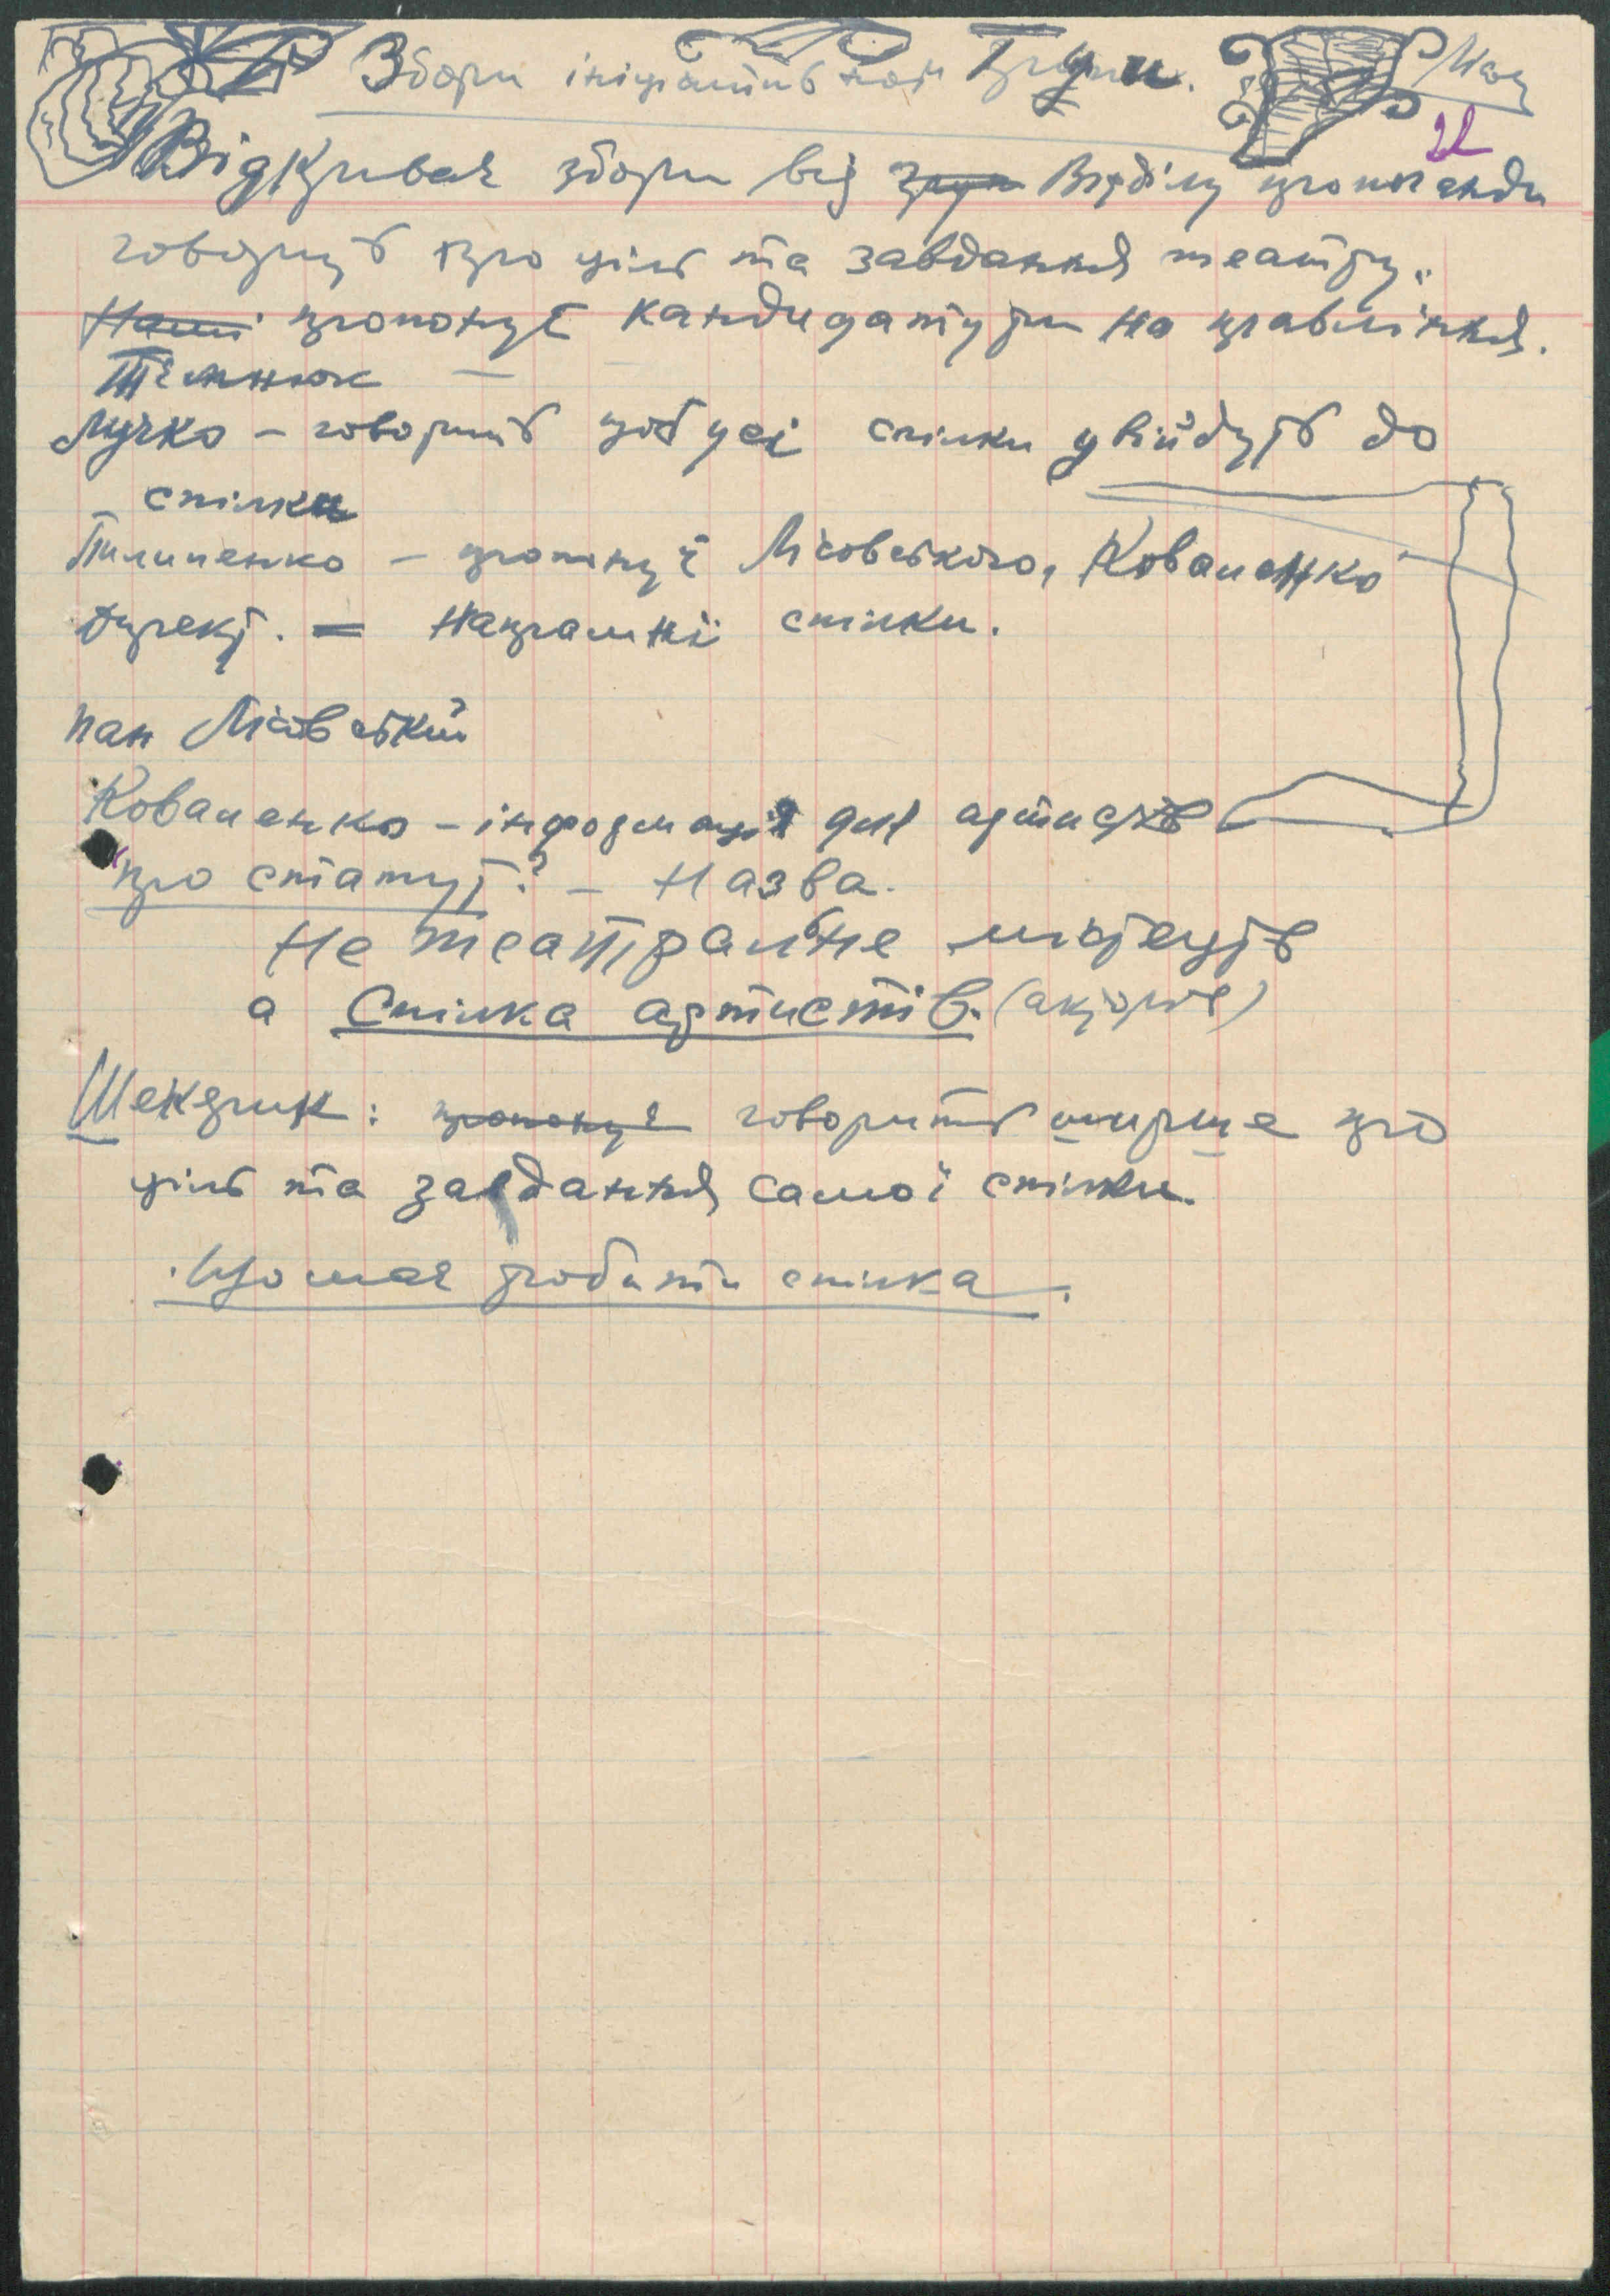 Збори ініціативної Групи.
Відкриває збори від груп Відділу пропаганди
говорить про ціль та завдання театру.
Наші пропонує кандидатури на правління.
Лучко – говорить щоб усі спілки увійдуть до
спілки
Пилипенко – пропонує Лісовського, Коваленко
директ. = Награмні спілки.
пан Лісовський
Коваленко – інформація для артистів
про статут? – Назва.
Не театральне мистецтв
а Спілка артистів. (акторів)
Шекерик: пропонує говорить ширше про
ціль та завдання самої спілки.
Що має робити спілка.